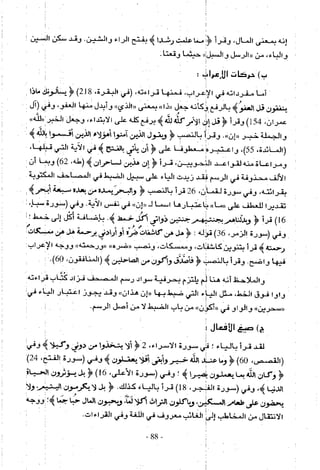 إنه بمعنى المال، وقرأ ﴿ مما علمت رشدا ﴾ بفتح الراء والشين. وقد سكن السين
والباء، من «الرسل والسبل» حيثما وقعتا.
ب) حركات الإعراب :
أما مفرداته في الإعراب، فمنها قراءته، (في البقرة، 218) ﴿ يسألونك ماذا
ينفقون قل العفو ﴾ بالرفع وكأنه جعل «ذا» بمعنى «الذي» وأبدل منها العفو. وفي (آل
عمران، 154) وقرأ ﴿ قل إن الأمر كله لله ﴾ برفع كله على الابتداء، وجعل الخبر «لله»
والجملة خبر «إن». وقرأ بالنصب ﴿ ويقول الذين آمنوا أهؤلاء الذين أقسموا بالله ﴾
(المائدة، 55)، واعتبره معطوفا على ﴿ أن يأتي بالفتح ﴾ في الآية التي قبلها.
ومراعاة منه لقواعد النحويين، قرأ ﴿ إن هذين لساحران ﴾ (طه، 62) وبما أن
الألف محذوفة في الرسم فقد زيدت الياء على سبيل الضبط في المصاحف المكتوبة
بقراءته. وفي سورة لقمان، 26 قرأ بالنصب ﴿ والبحر يمده من بعده سبعة أبحر ﴾،
تقديرا للعطف على «ما» باعتبارها اسما لـ «إن» في نفس الآية. وفي (سورة سبأ،
16) قرأ ﴿ وبدلناهم بجنتيهم جنتين ذواتي أكل خمط ﴾. بإضافة أكل إلى خمط ؛
وفي (سورة الزمر، 36) قوله : ﴿ هل هن كاشفات ضره أو أرادني برحمة هل هن ممسكات
رحمته ﴾ قرأ بتنوين كاشفات، وممسكات، ونصب «ضره» «ورحمته» ووجه الإعراب
فيها واضح. وقرأ بالنصب ﴿ فأصدق وأكون من الصالحين ﴾ (المنافقون، 60).
والملاحظ أنه هنا لم يلتزم بحرفية سواد رسم المصحف فزاد كتّاب قراءته
واوا فوق الخط، مثل الياء التي ضبط بها «إن هذان» وقد يجوز اعتبار الياء في
«لسحرين» والواو في «أكون» من باب الضبط لا من أصل الرسم.
ج) صيغ الأفعال :
لقد قرأ بالياء : في سورة الاسراء، 2 ﴿ ألا يتخذوا من دوني وكيلا ﴾ وفي
(القصص، 60) ﴿ وما عند الله خير وأبقى أفلا يعقلون ﴾ وفي (سورة الفتح، 24)
﴿ وكان الله بما يعملون بصيرا ﴾ ؛ وفي (سورة الأعلى، 16) ﴿ بل يؤثرون الحياة
الدنيا ﴾، وفي (سورة الفجر، 18) قرأ بالياء كذلك. ﴿ بل لا يكرمون اليتيم، ولا
يحضون على طعام المسكين، وياكلون التراث أكلا لما، ويحبون المال حبا جما ﴾؛ ووجه
الانتقال من المخاطب إلى الغائب معروف في اللغة وفي القراءات.
- 88 -